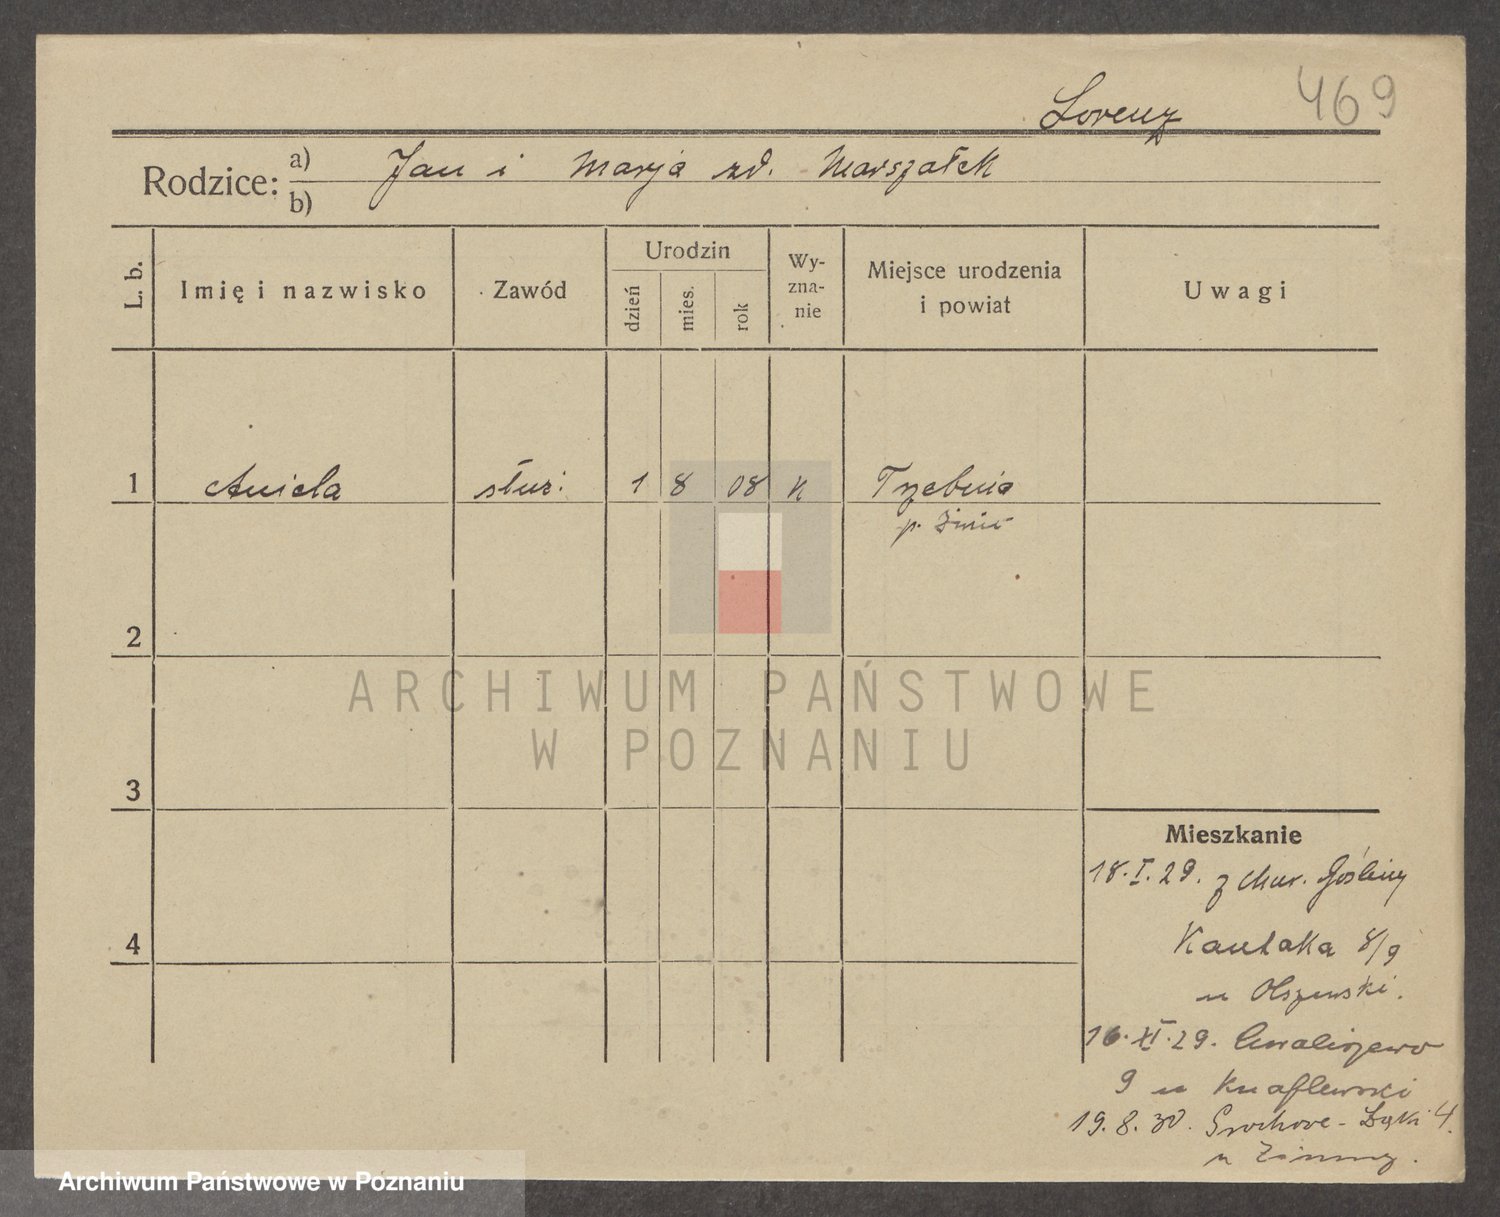 469
Lorenz
Rodzice: a) Jan i Marja zd. Marszałek
b)
L. b. Imię i nazwisko Zawód Urodzin dzień mies. rok Wy-zna-nie Miejsce urodzenia i powiat Uwagi
1 Aniela służ. 1 8 08 k Trzebinia
p. Żnin
2
ARCHIWUM PAŃSTWOWE
W POZNANIU
3
Mieszkanie
18.I.29. z Mur. Gośliny
4
Kantaka 8/9
u Olszewski.
16.XI.29. Chwaliszewo
9 u Knaflewski
19.8.30. Grochowe-Łąki 4.
u Zimny.
Archiwum Państwowe w Poznaniu